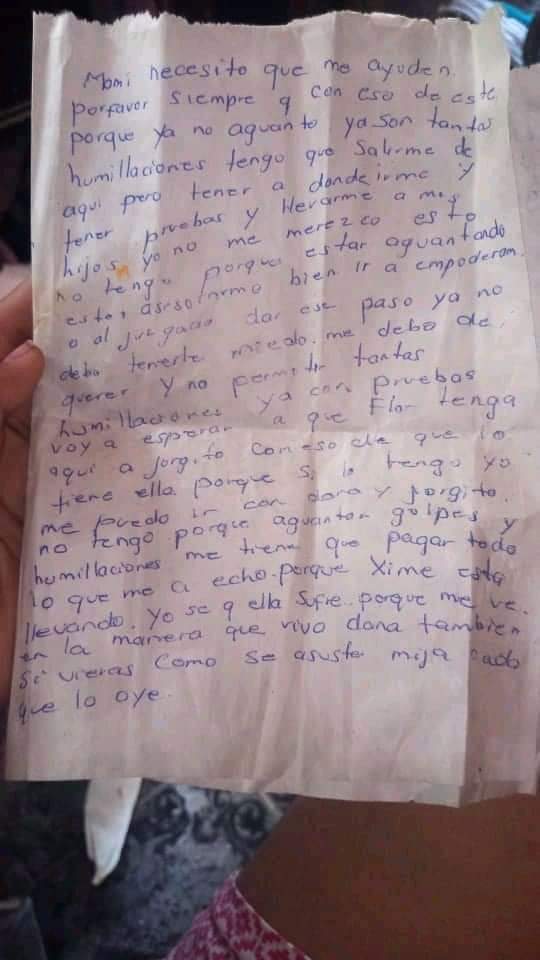 Mami necesito que me ayuden.
porfavor siempre q con eso de este
porque ya no aguanto ya son tantas
humillaciones tengo que Salirme de
aqui pero tener a donde irme y
tener pruebas y llevarme a mis
hijos yo no me merezco esto
no tengo porque estar aguantando
esto, asesorarme bien ir a empoderam.
o al juzgado dar ese paso ya no
debo tenerle miedo. me debo de
querer y no permitir tantas
humillaciones ya con pruebas
voy a esperar a que Flor tenga
aqui a jorgito con eso de que lo
tiene ella porque si lo tengo yo
me puedo ir con dana y jorgito.
no tengo porque aguantar golpes y
humillaciones me tiene que pagar todo
lo que me a echo. porque Xime esta
llevando. Yo se q ella Sufre.. porque me ve.
en la manera que vivo dana tambien
Si vieras como se asusta mija cada
que lo oye.